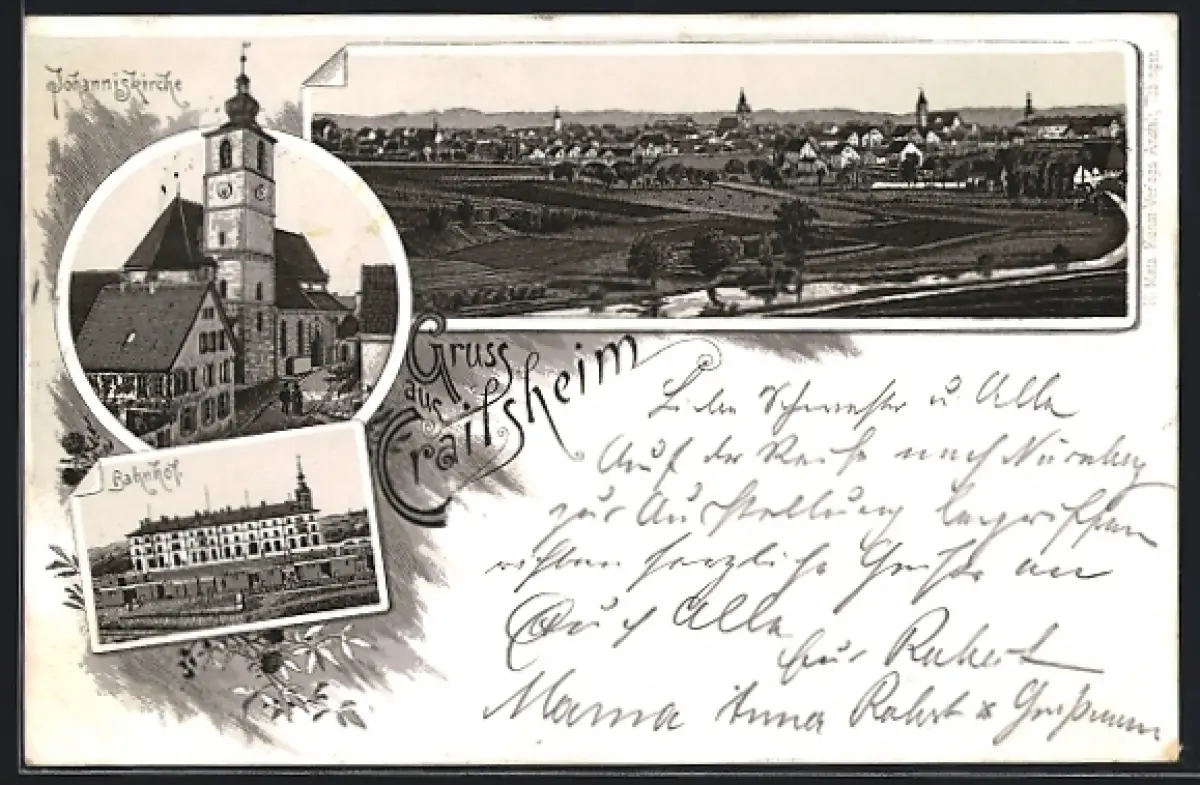 Johanniskirche
Bahnhof.
Gruss
aus
Crailsheim
Liebe Schwester u Alle
Auf der Reise nach Nürnberg
zur Ausstellung begriffen
herzliche Grüße an
Euch Alle
Robert
Mama Anna Robert